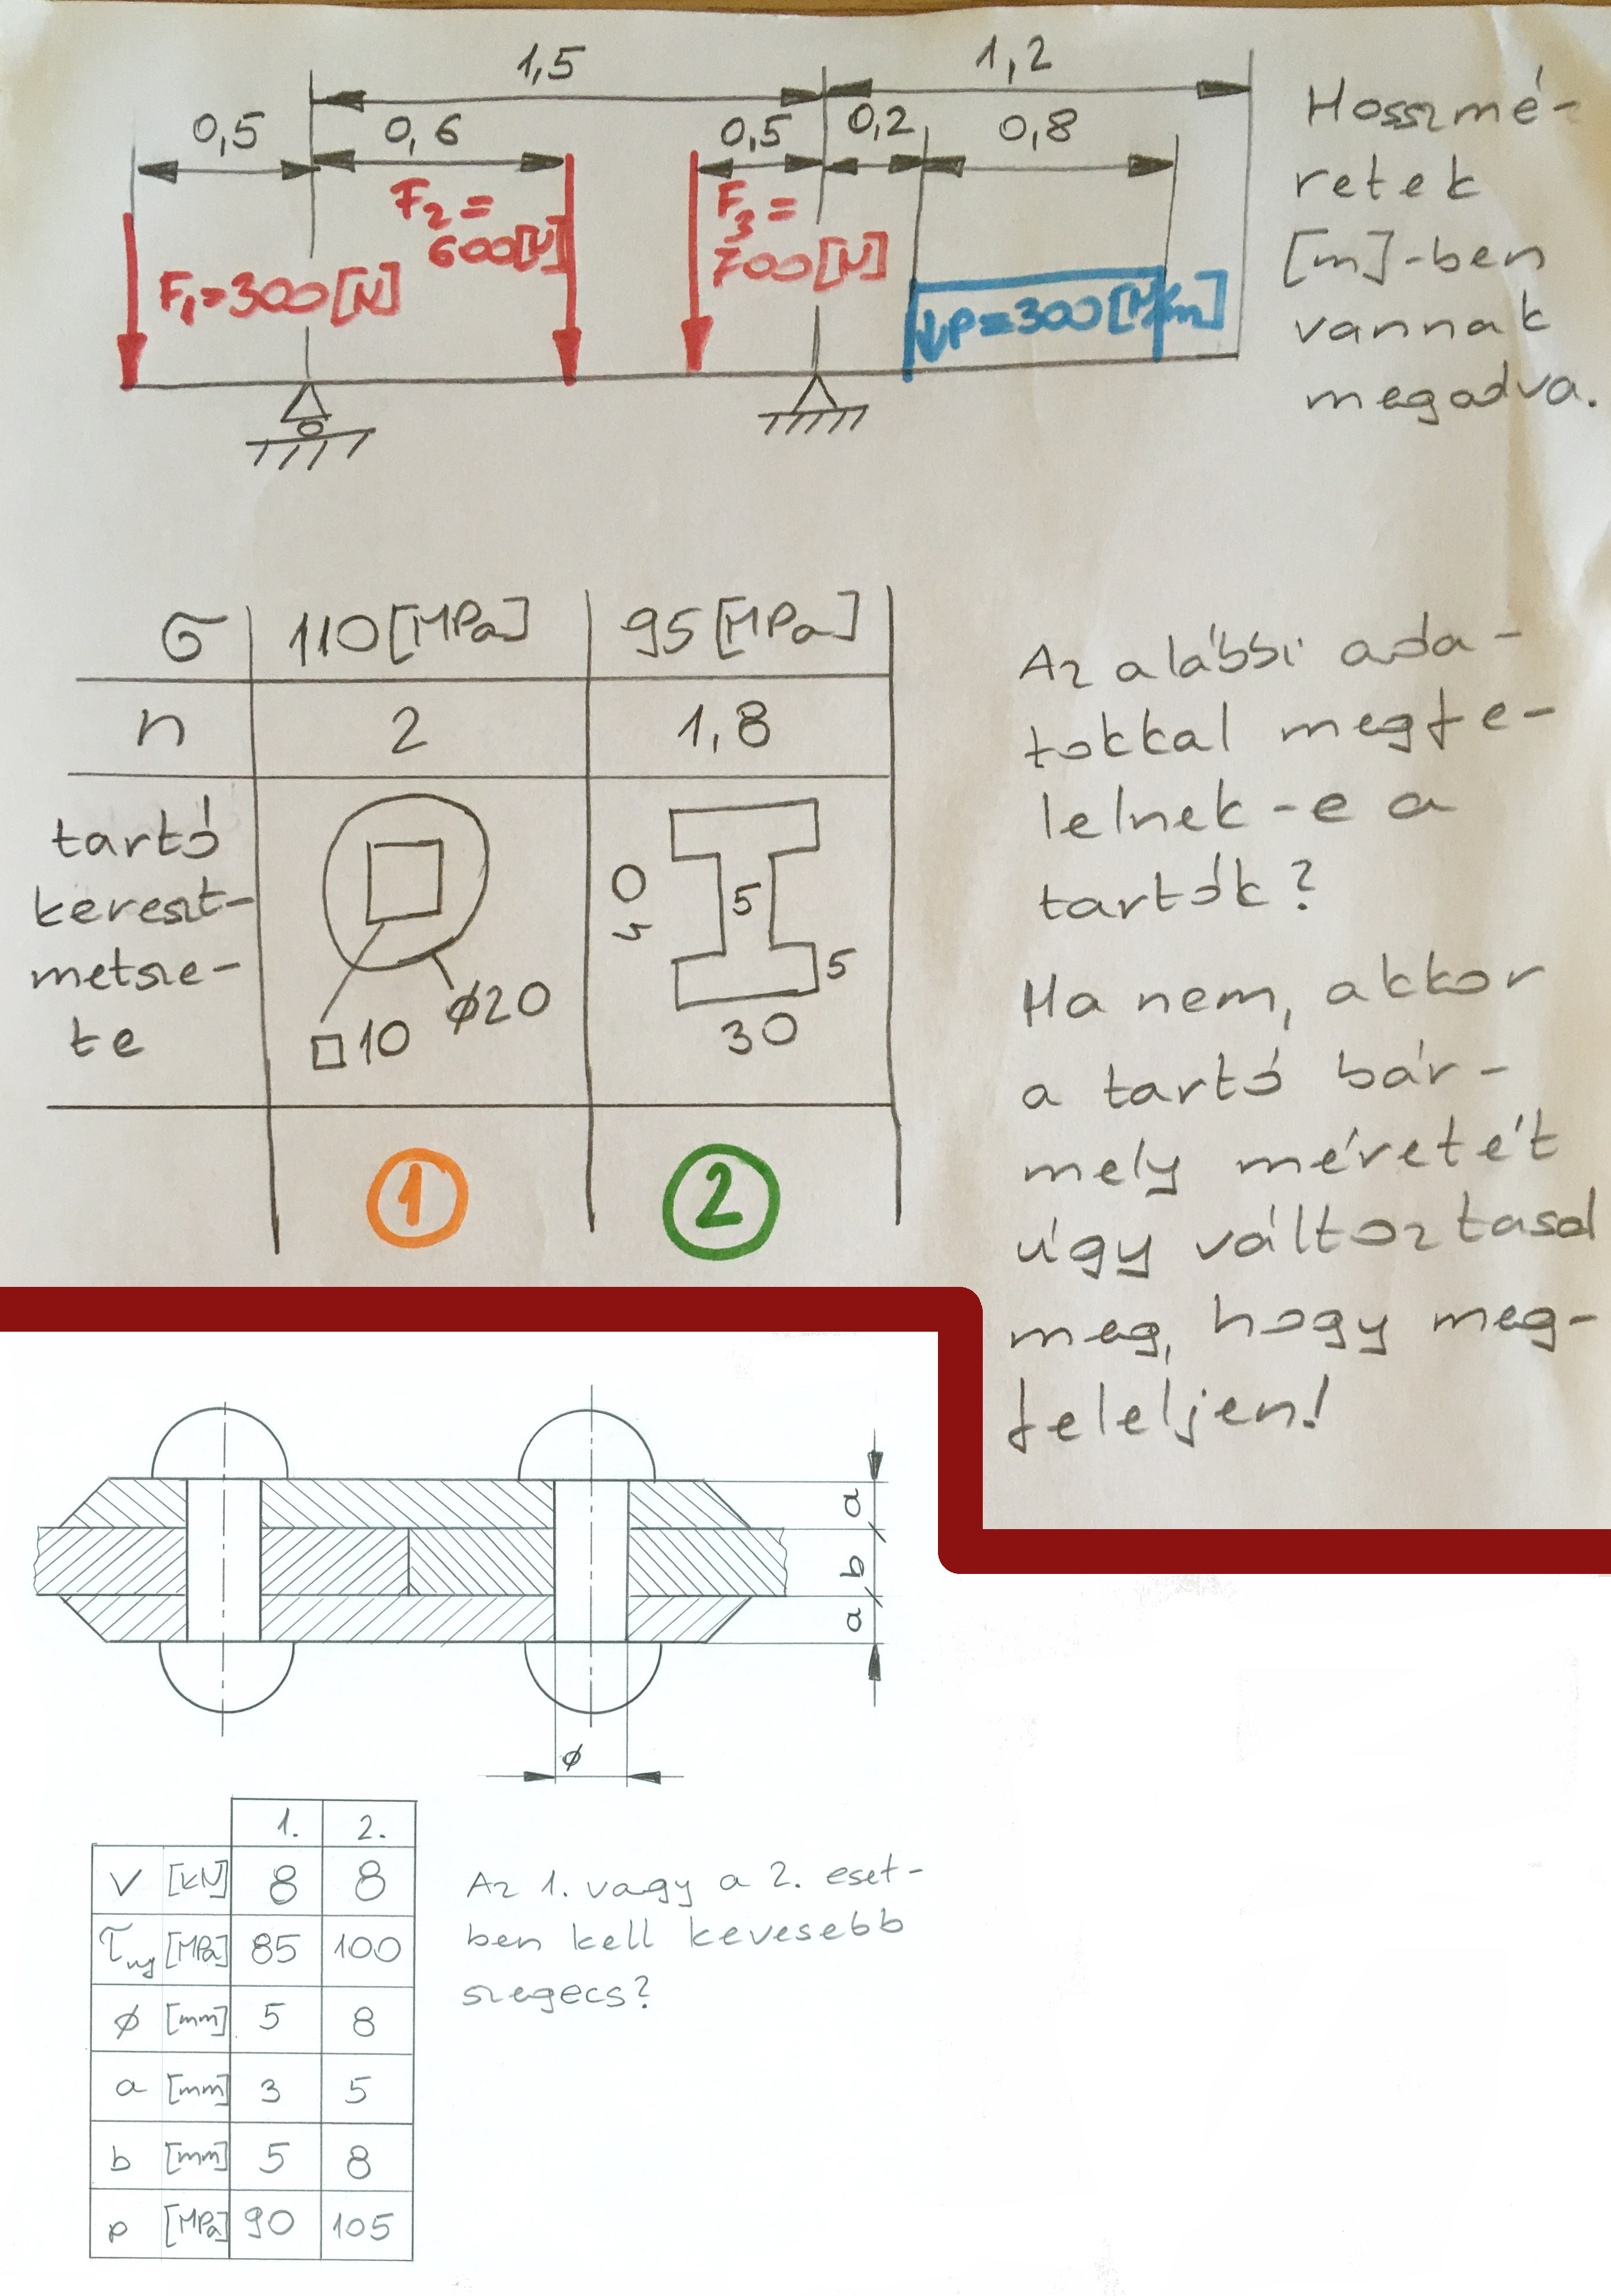 1,5
1,2
0,5
0,6
0,5
0,2
0,8
F₂=
600[N]
F₃=
700[N]
F₁=300[N]
↓p=300[N/m]
Hosszmé-
retek
[m]-ben
vannak
megadva.
σ 110[MPa] 95[MPa]
n 2 1,8
tartó
kereszt-
metsze-
te
□10
ø20
5
5
30
1
2
Az alábbi ada-
tokkal megfe-
lelnek-e a
tartók?
Ha nem, akkor
a tartó bár-
mely méretét
úgy változtasd
meg, hogy meg-
feleljen!
a
b
a
ø
1. 2.
V [kN] 8 8
τny [MPa] 85 100
ø [mm] 5 8
a [mm] 3 5
b [mm] 5 8
p [MPa] 90 105
Az 1. vagy a 2. eset-
ben kell kevesebb
szegecs?